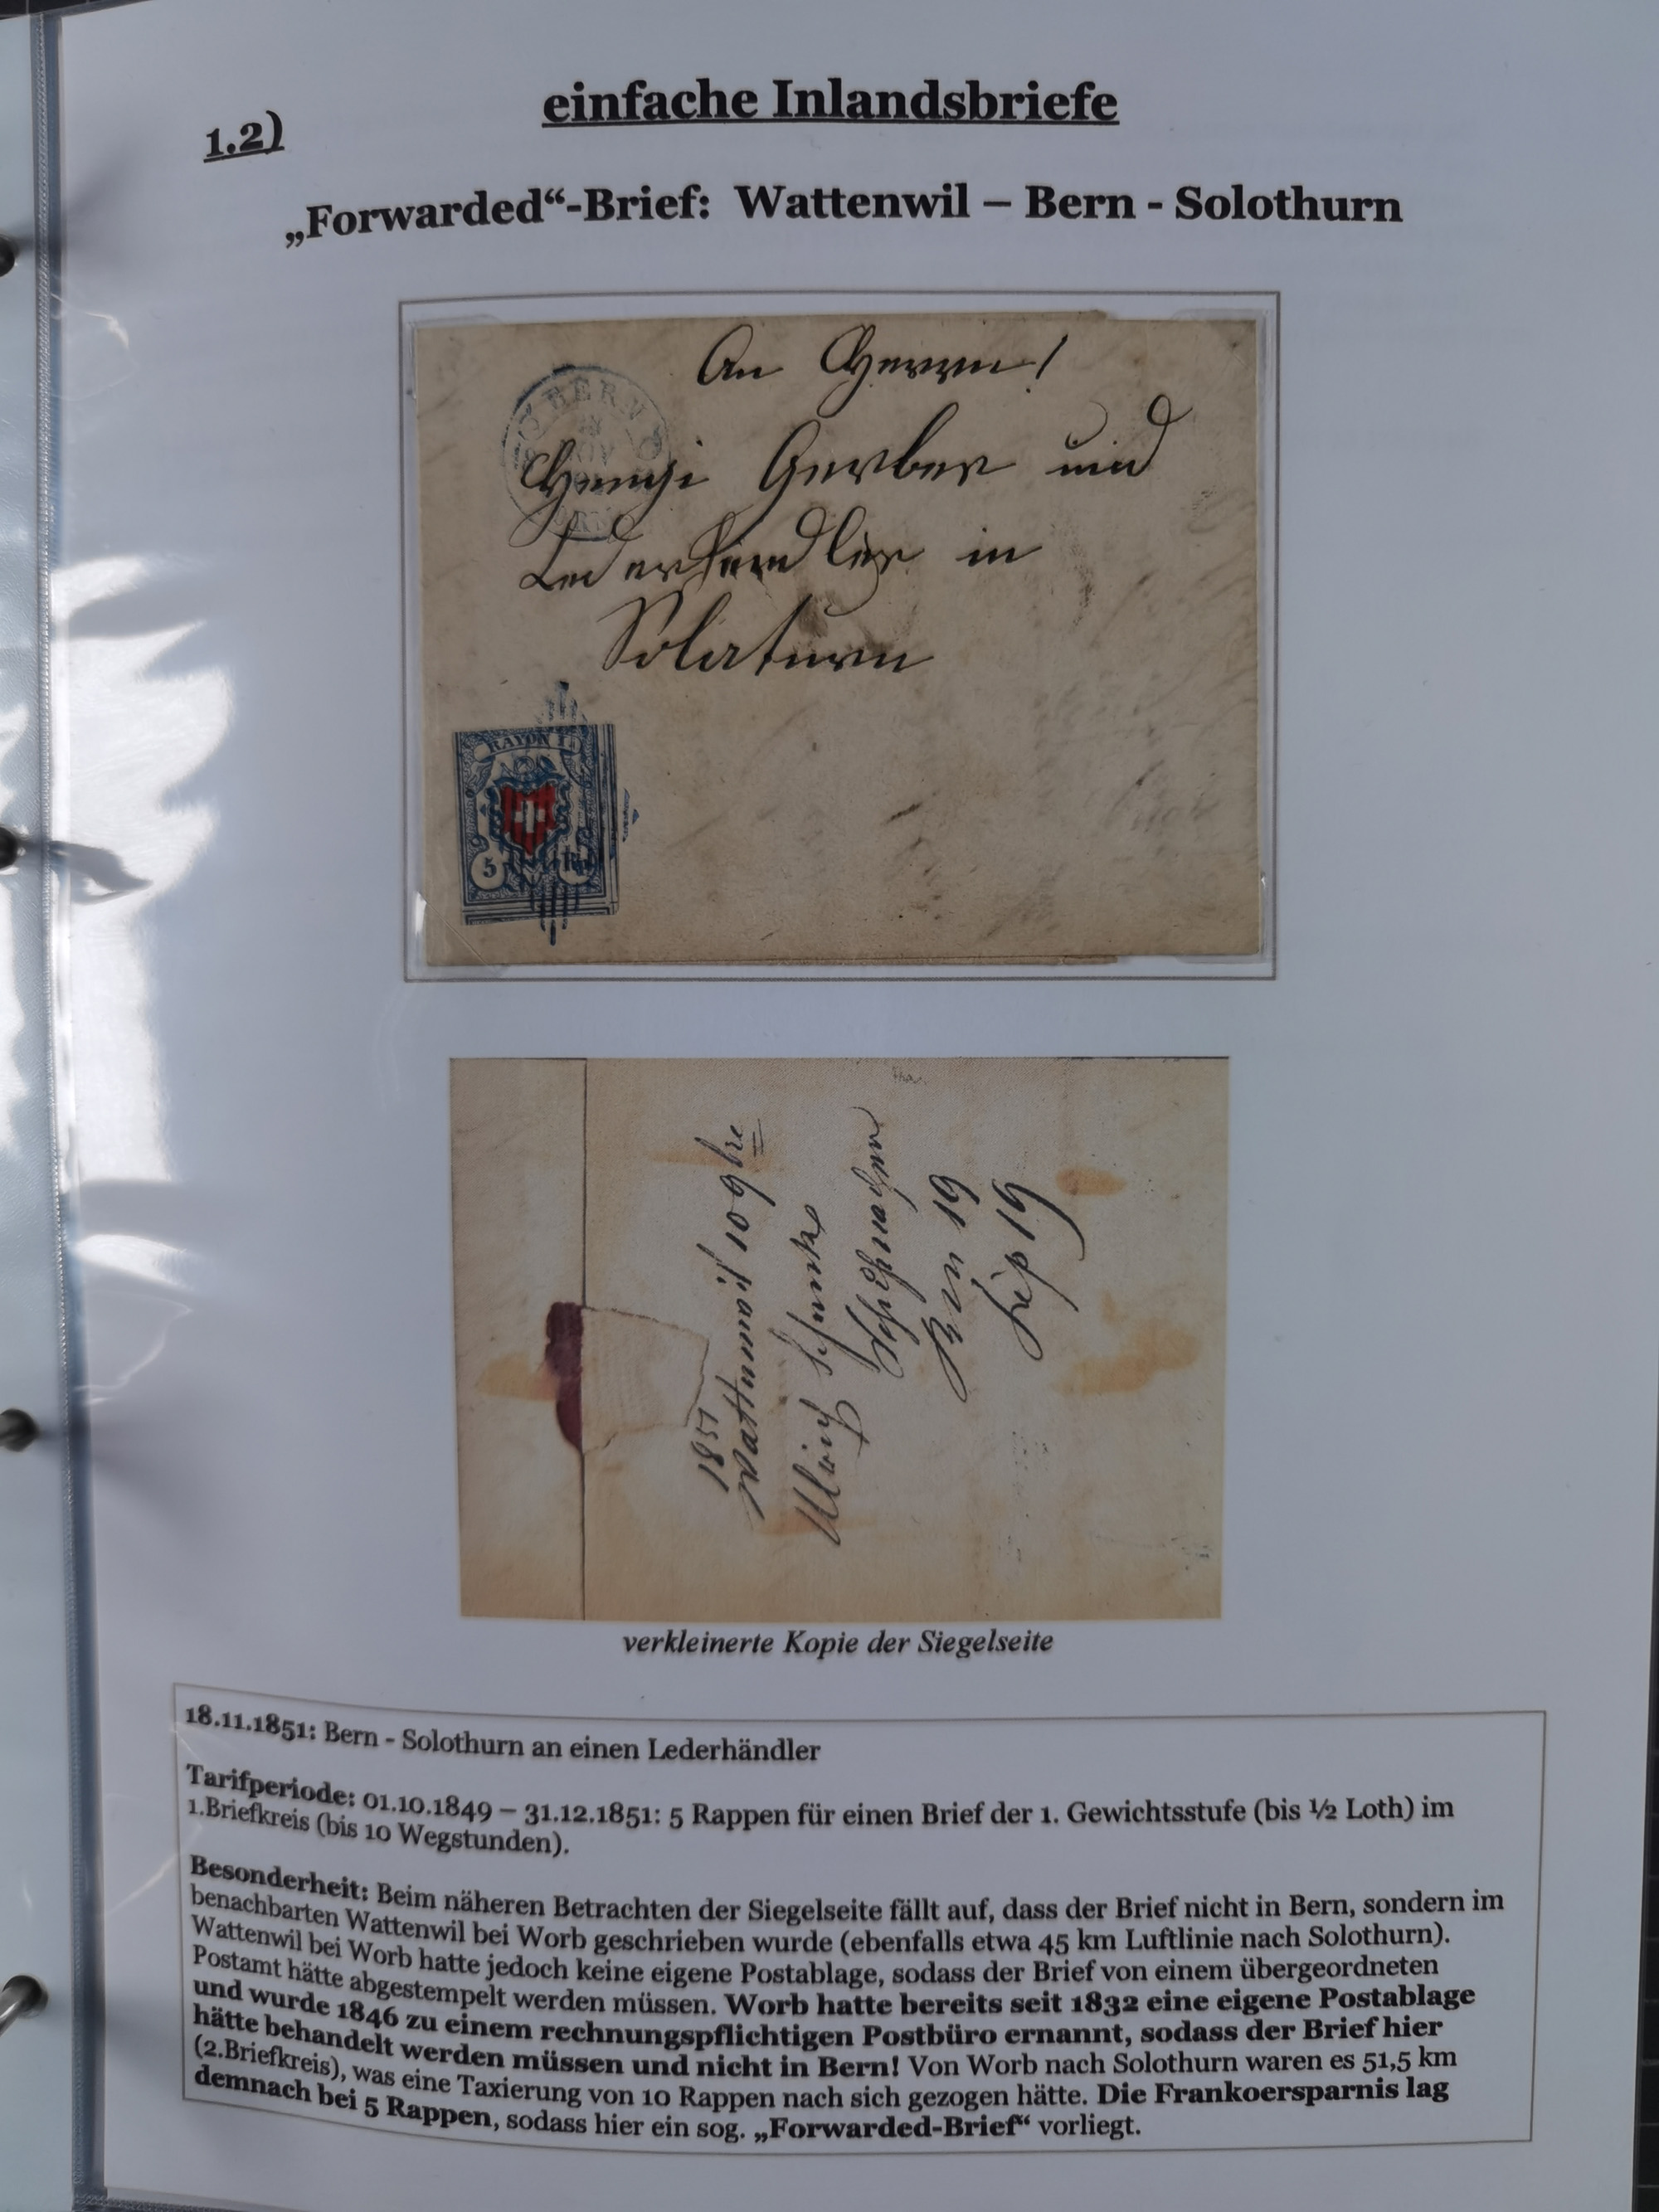 einfache Inlandsbriefe
1.2)
„Forwarded“-Brief: Wattenwil – Bern - Solothurn
An Herrn!
BERN
Gerber und
Lederhendler in
Solaturn
RAYON I.
5 Rp.
1851
Wattenwil 10 9bre
Ulrich Schenk
19
19
verkleinerte Kopie der Siegelseite
18.11.1851: Bern - Solothurn an einen Lederhändler
Tarifperiode: 01.10.1849 – 31.12.1851: 5 Rappen für einen Brief der 1. Gewichtsstufe (bis ½ Loth) im
1.Briefkreis (bis 10 Wegstunden).
Besonderheit: Beim näheren Betrachten der Siegelseite fällt auf, dass der Brief nicht in Bern, sondern im
benachbarten Wattenwil bei Worb geschrieben wurde (ebenfalls etwa 45 km Luftlinie nach Solothurn).
Wattenwil bei Worb hatte jedoch keine eigene Postablage, sodass der Brief von einem übergeordneten
Postamt hätte abgestempelt werden müssen. Worb hatte bereits seit 1832 eine eigene Postablage
und wurde 1846 zu einem rechnungspflichtigen Postbüro ernannt, sodass der Brief hier
hätte behandelt werden müssen und nicht in Bern! Von Worb nach Solothurn waren es 51,5 km
(2.Briefkreis), was eine Taxierung von 10 Rappen nach sich gezogen hätte. Die Frankoersparnis lag
demnach bei 5 Rappen, sodass hier ein sog. „Forwarded-Brief“ vorliegt.